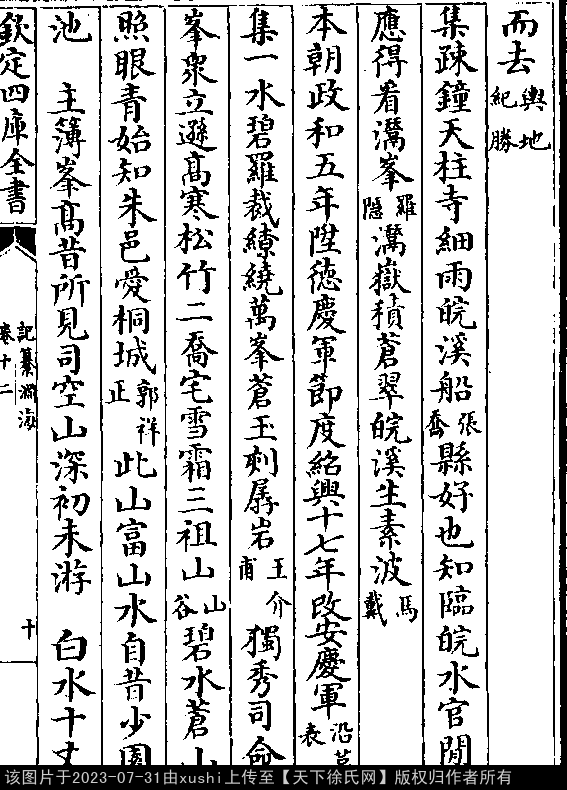 而去輿地紀勝
集疎鐘天柱寺細雨皖溪船張喬縣好也知臨皖水官閒
應得看灊峯羅隱灊嶽積蒼翠皖溪生素波馬戴
本朝政和五年陞德慶軍節度紹興十七年改安慶軍沿革表
集一水碧羅裁繚繞萬峯蒼玉刺孱岩王介甫獨秀司命
峯衆立遜高寒松竹二喬宅雪霜三祖山山谷碧水蒼山
照眼青始知朱邑愛桐城郭祥正此山富山水自昔少園
池 主簿峯高昔所見司空山深初未游 白水十丈
欽定四庫全書
記纂淵海
卷十二
十
该图片于2023-07-31由xushi上传至【天下徐氏网】版权归作者所有